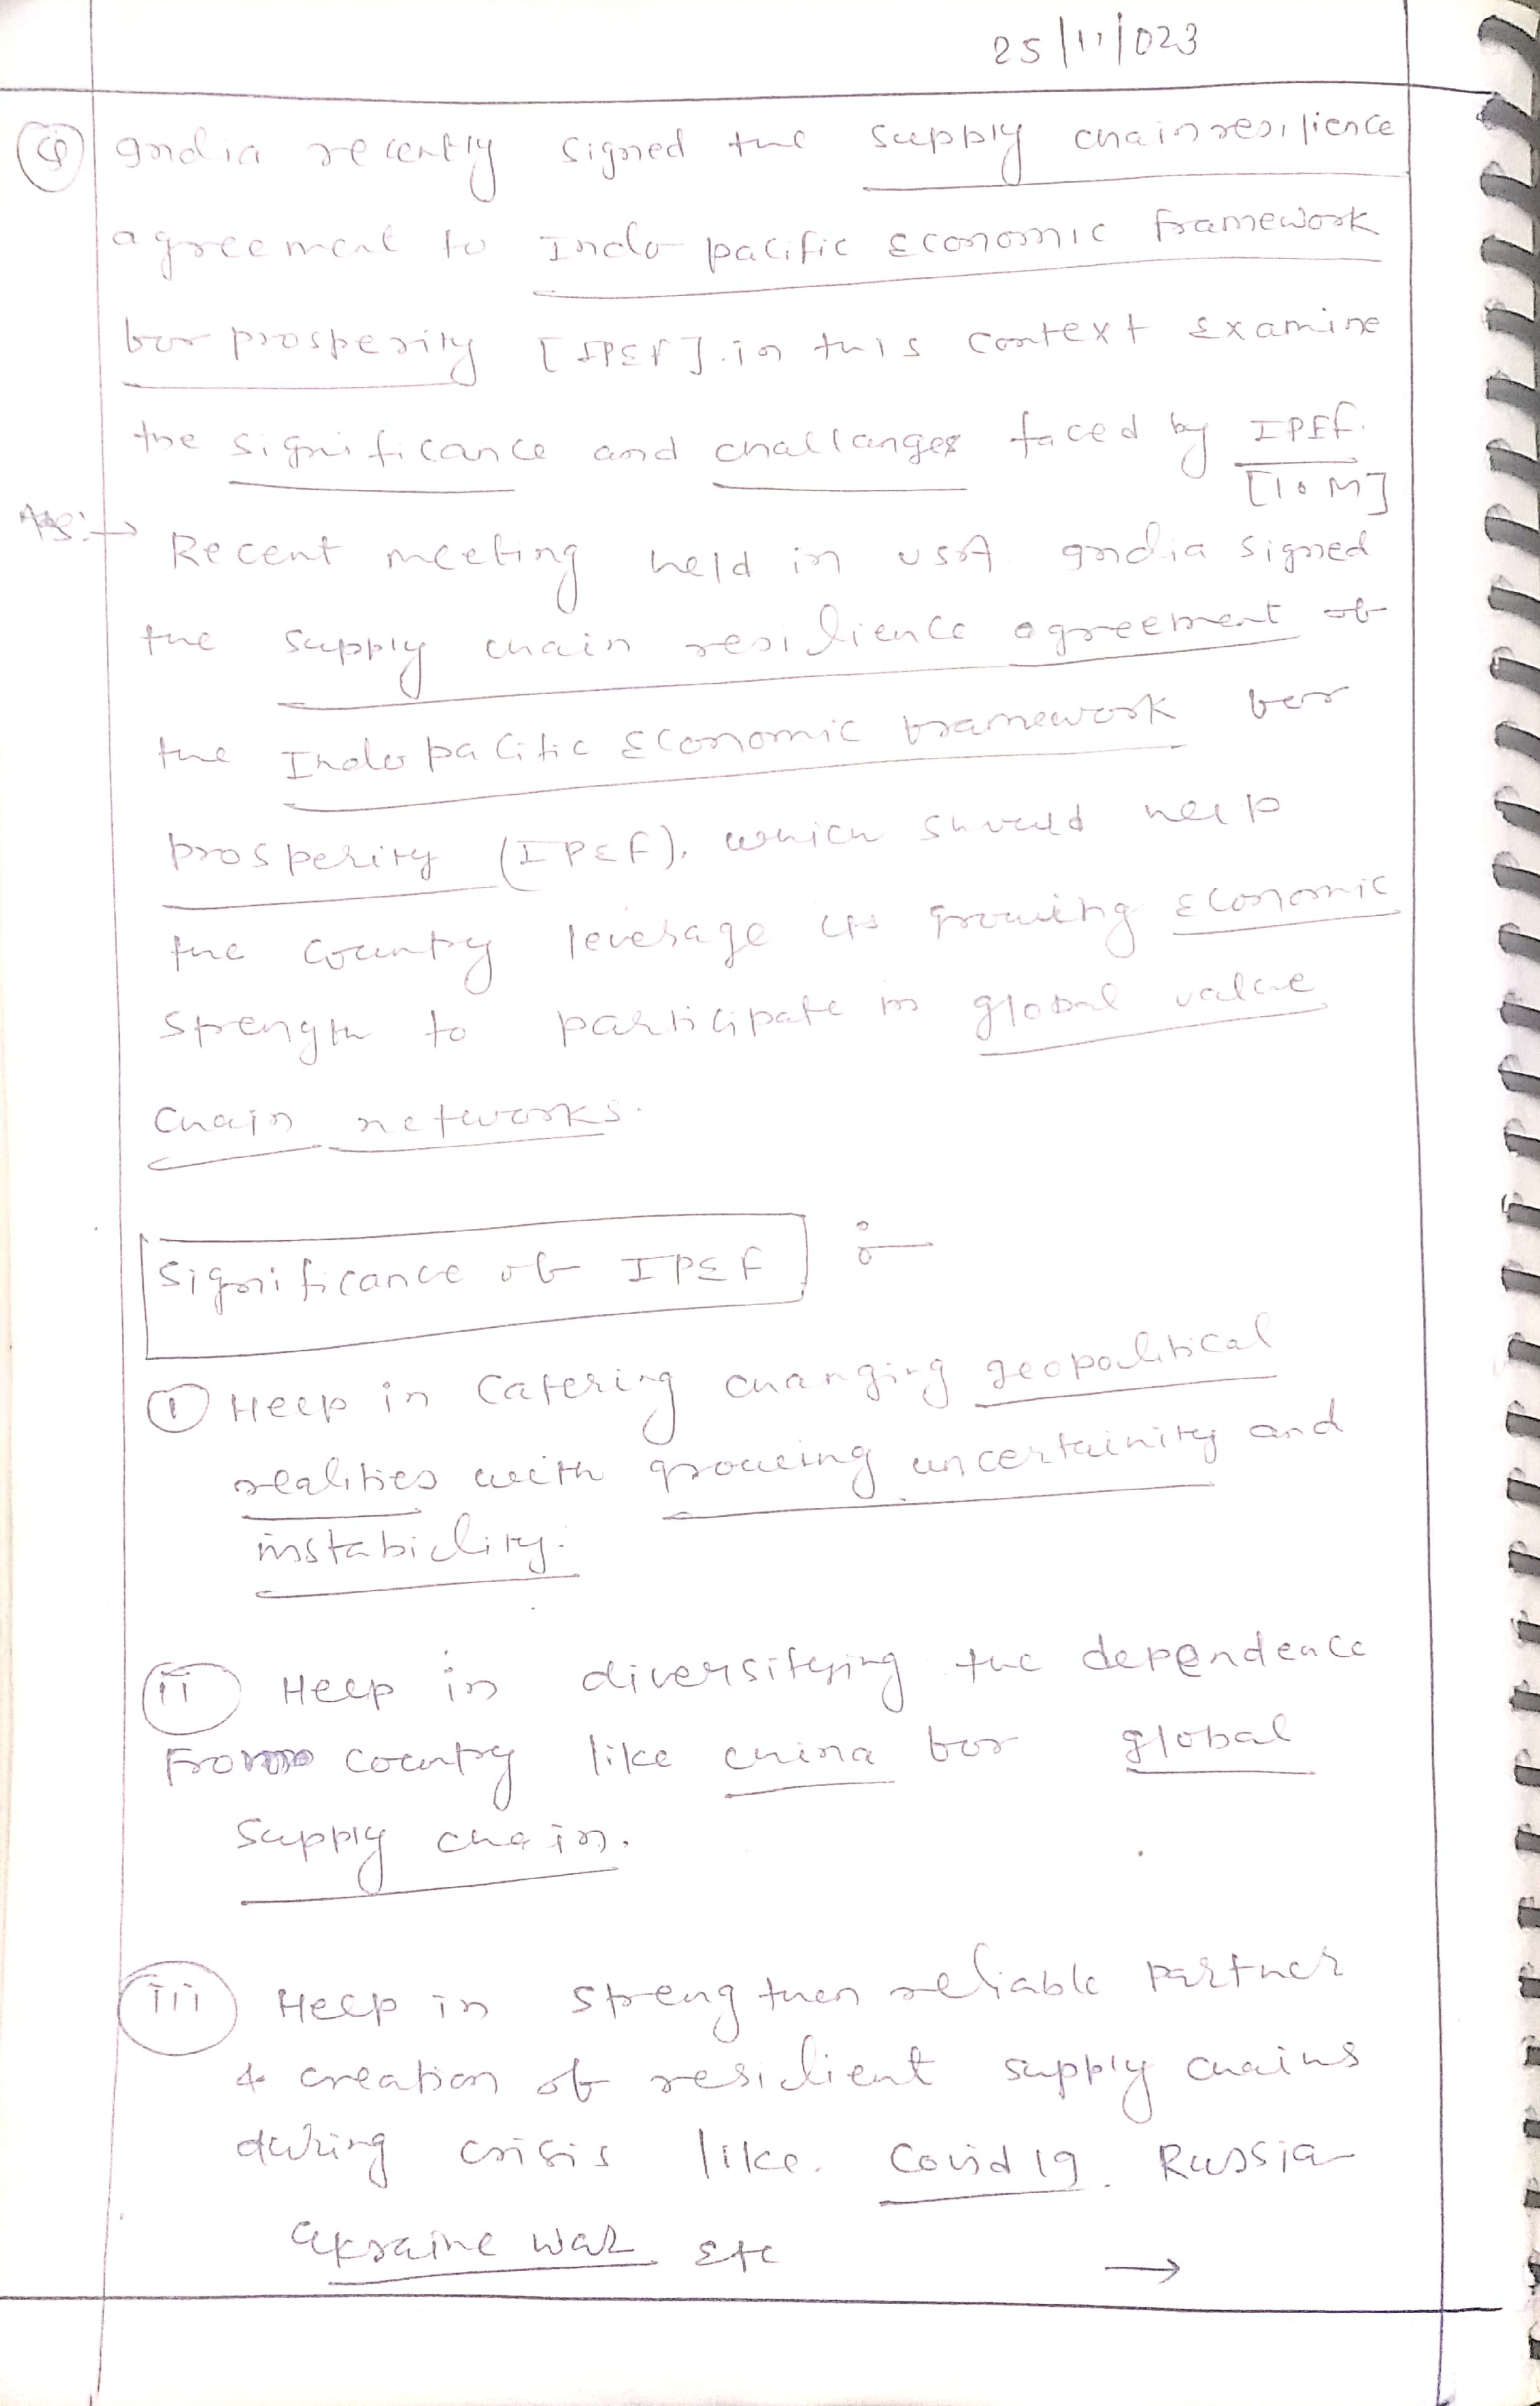 25/11/023
Q India recently signed the supply chain resilience
agreement to Indo pacific Economic framework
for prosperity [IPEF]. in this context Examine
the significance and challanges faced by IPEF.
[10 M]
Ans:→ Recent meeting held in USA India signed
the supply chain resilience agreement of
the Indo pacific Economic framework for
prosperity (IPEF), which should help
the country leverage its growing Economic
strength to participate in global value
chain networks.
Significance of IPEF :-
(i) Help in catering changing geopolitical
realities with growing uncertainity and
instability.
(ii) Help in diversifying the dependence
From country like china for global
supply chain.
(iii) Help in strengthen reliable partner
& creation of resilient supply chains
during crisis like. Covid 19. Russia
Ukraine war Etc →